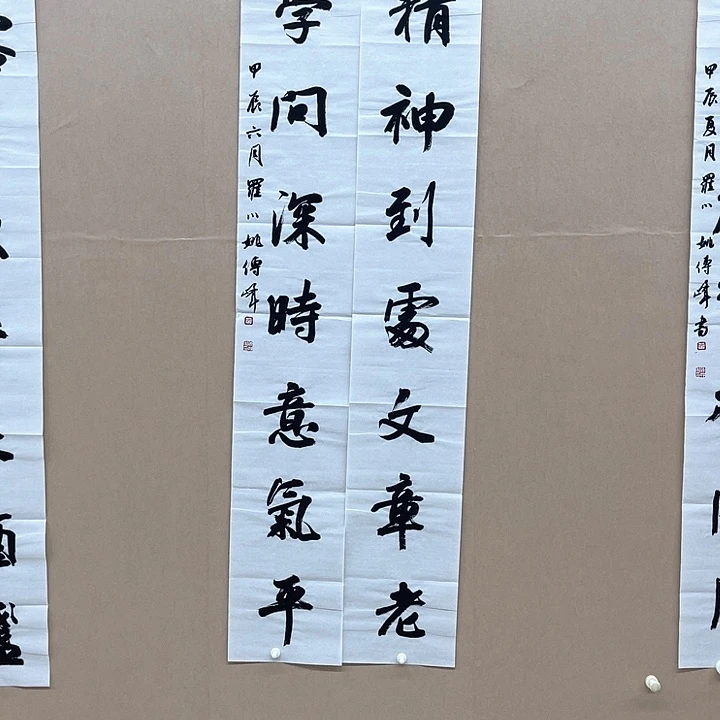 精神到處文章老
學問深時意氣平
甲辰六月羅川姚傳峰
甲辰夏月羅川姚傳峰書
酒